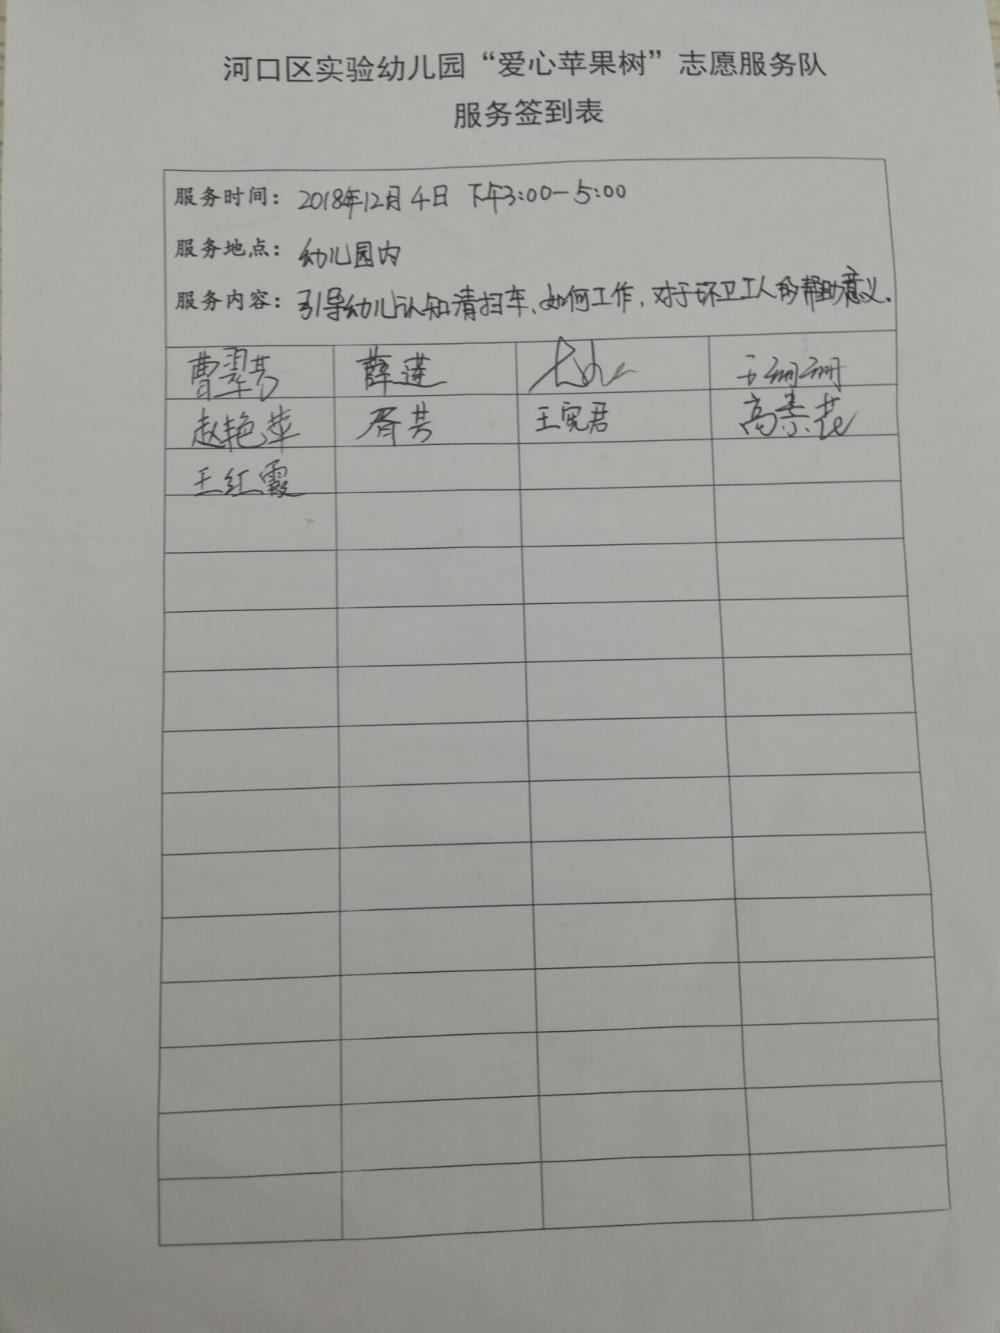 河口区实验幼儿园“爱心苹果树”志愿服务队
服务签到表
服务时间：2018年12月4日 下午3:00-5:00
服务地点：幼儿园内
服务内容：引导幼儿认知清扫车、如何工作，对于环卫工人的帮助意义.
曹翠芳 薛莲 王珊珊
赵艳萍 胥芳 王宪君 高素花
王红霞